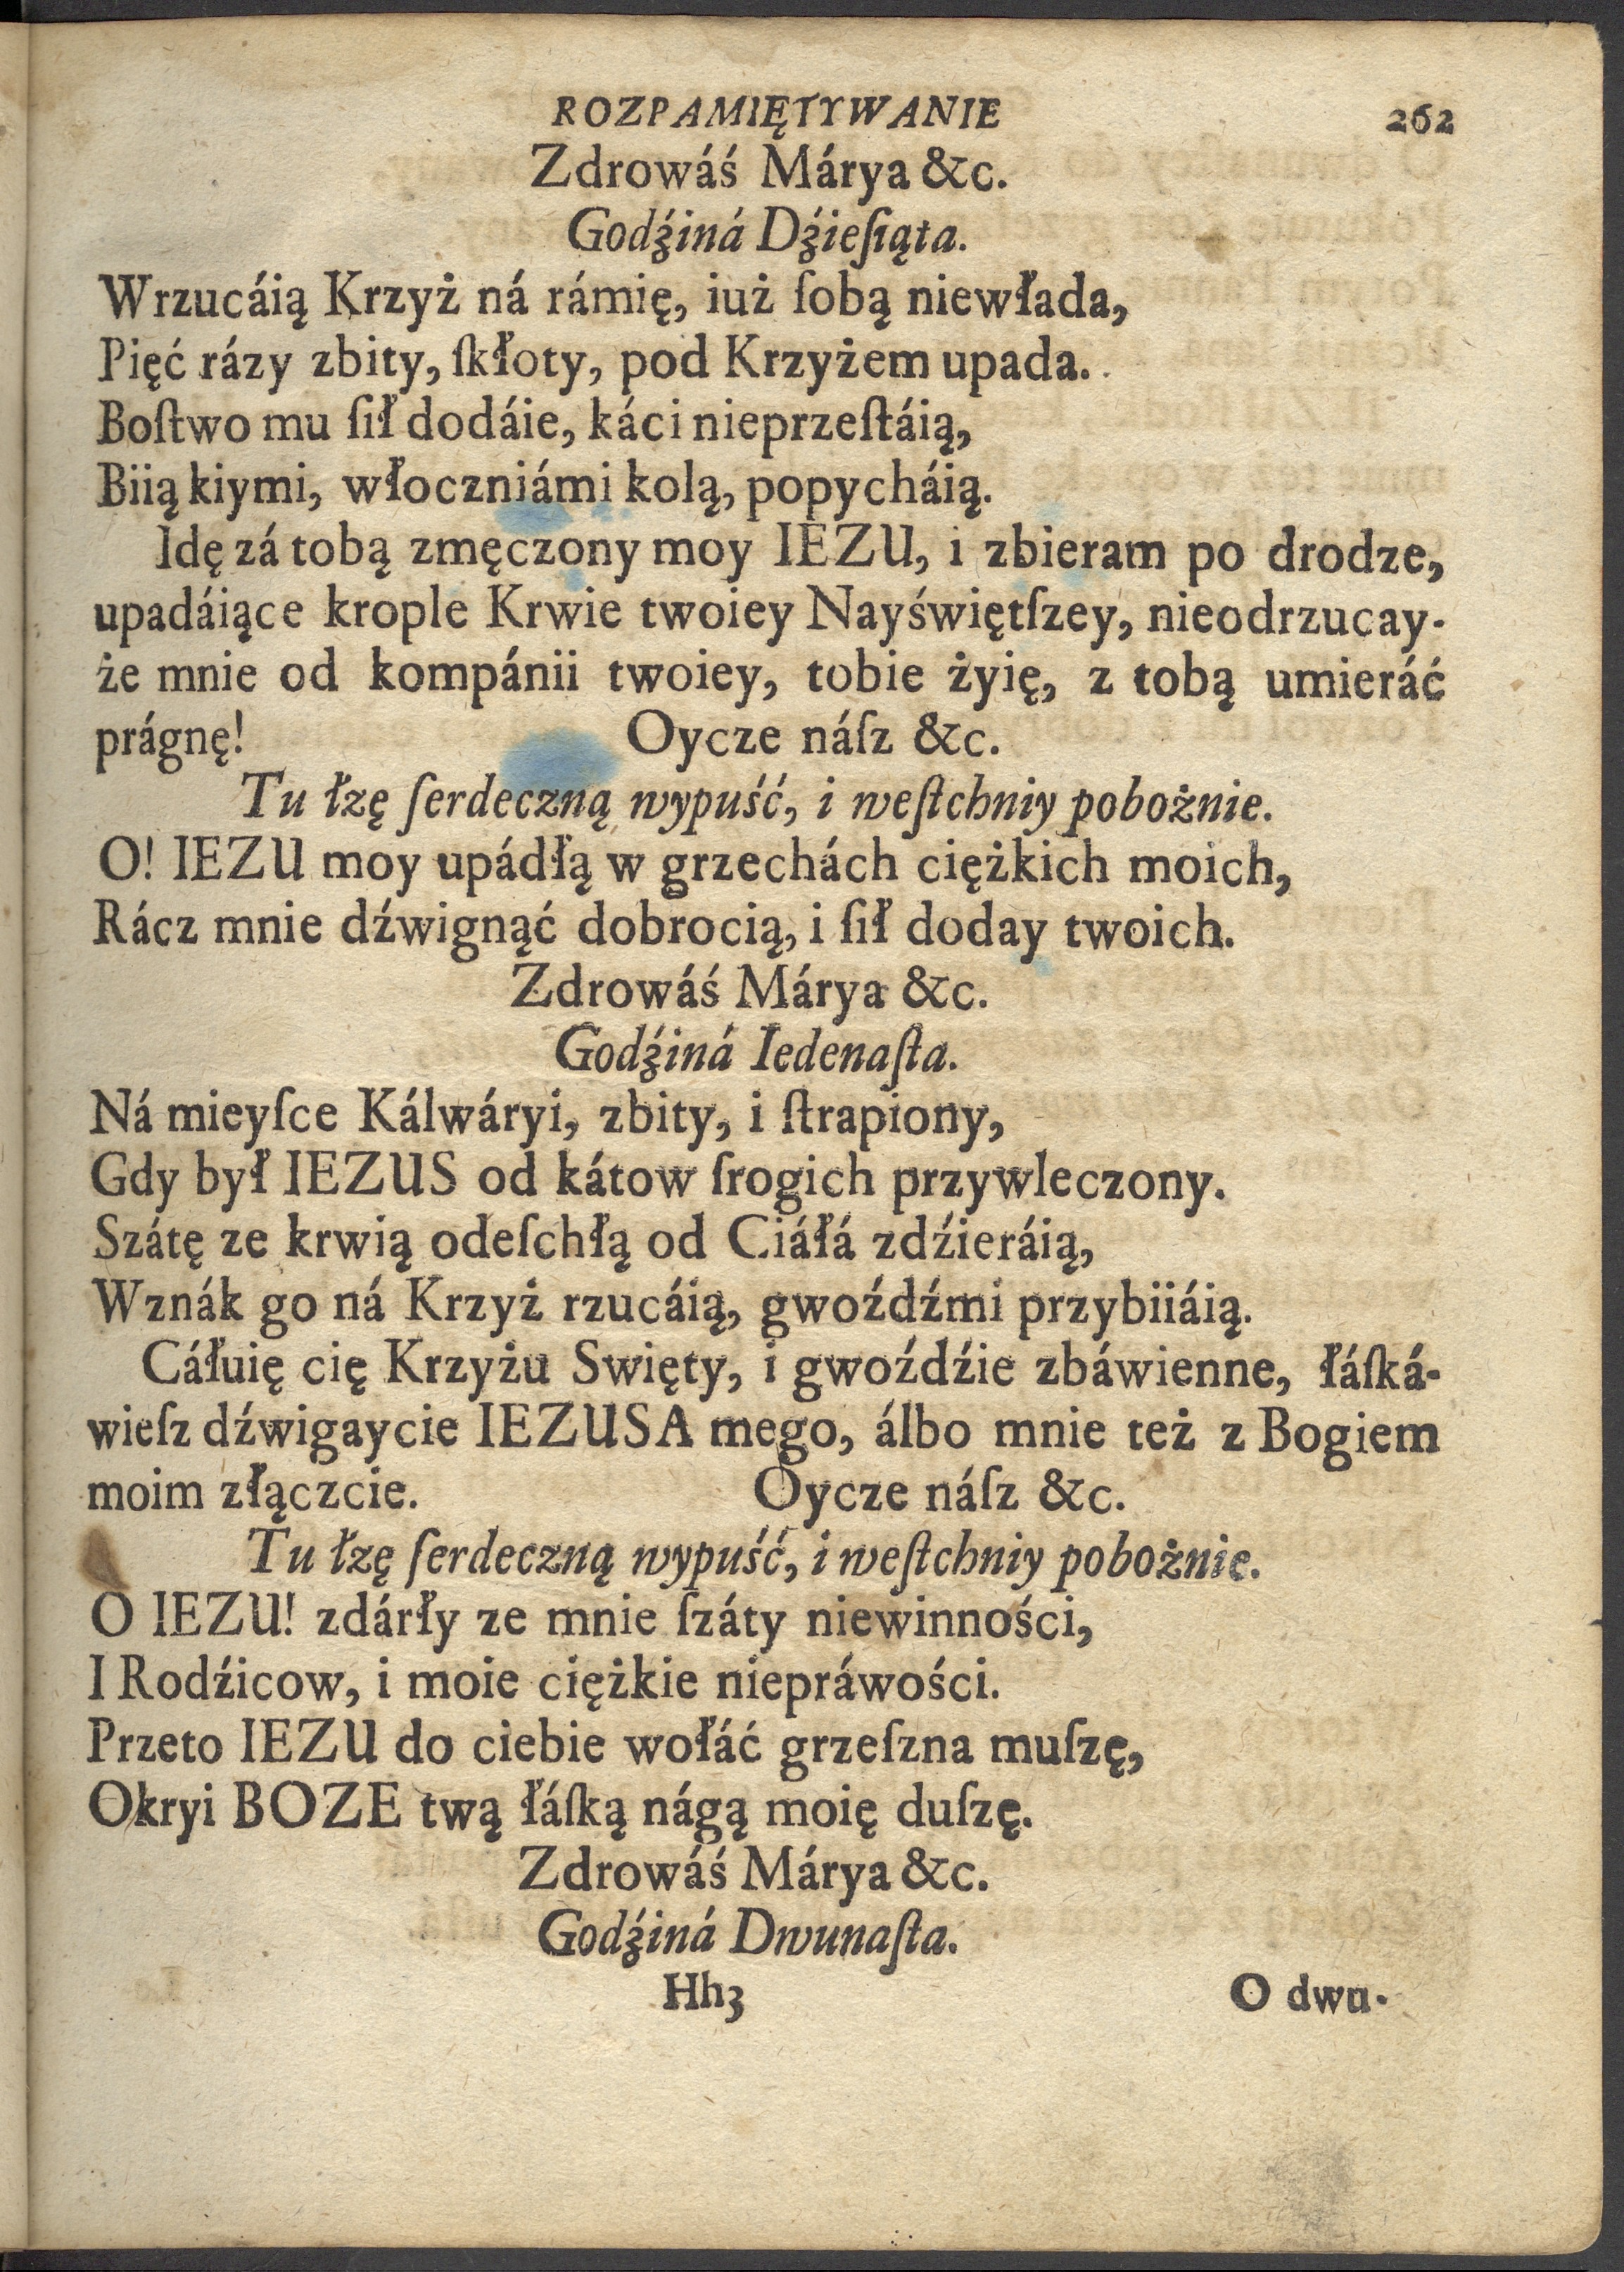 ROZPAMIĘTYWANIE 262
Zdrowáś Márya &c.
Godźiná Dźieſiąta.
Wrzucáią Krzyż ná rámię, iuż ſobą niewłada,
Pięć rázy zbity, ſkłoty, pod Krzyżem upada.
Boſtwo mu ſił dodáie, káci nieprzeſtáią,
Biią kiymi, włoczniámi kolą, popycháią.
Idę zá tobą zmęczony moy IEZU, i zbieram po drodze,
upadáiące krople Krwie twoiey Nayświętſzey, nieodrzucay-
że mnie od kompánii twoiey, tobie żyię, z tobą umieráć
prágnę! Oycze náſz &c.
Tu łzę ſerdeczną wypuść, i weſtchniy pobożnie.
O! IEZU moy upádłą w grzechách ciężkich moich,
Rácz mnie dźwignąć dobrocią, i ſił doday twoich.
Zdrowáś Márya &c.
Godźiná Iedenaſta.
Ná mieyſce Kálwáryi, zbity, i ſtrapiony,
Gdy był IEZUS od kátow ſrogich przywleczony.
Szátę ze krwią odeſchłą od Ciáłá zdźieráią,
Wznák go ná Krzyż rzucáią, gwoźdźmi przybiiáią.
Cáłuię cię Krzyżu Swięty, i gwoźdźie zbáwienne, łáſká-
wieſz dźwigaycie IEZUSA mego, álbo mnie też z Bogiem
moim złączcie. Oycze náſz &c.
Tu łzę ſerdeczną wypuść, i weſtchniy pobożnie.
O IEZU! zdárły ze mnie ſzáty niewinności,
I Rodźicow, i moie ciężkie niepráwości.
Przeto IEZU do ciebie wołáć grzeſzna muſzę,
Okryi BOZE twą łáſką nágą moię duſzę.
Zdrowáś Márya &c.
Godźiná Dwunaſta.
Hh3 O dwu-